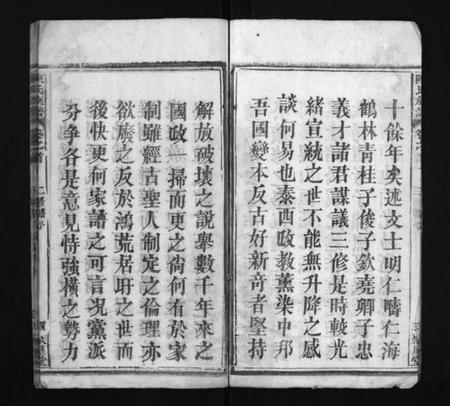 十餘年矣述文士明仁疇仁海
鶴林青桂子俊子欽堯卿子忠
義才諸君謀議三修是時較光
緒宣統之世不能無升降之感
談何易也泰西政教薰染中邦
吾國變本反古好新奇者堅持
解放破壞之說舉數千年來之
國政一掃而更之尚何有於家
制雖經古聖人制定之倫理亦
欲廢之反於鴻荒居盱之世而
後快更何家譜之可言况黨派
分爭各是意見恃強橫之勢力